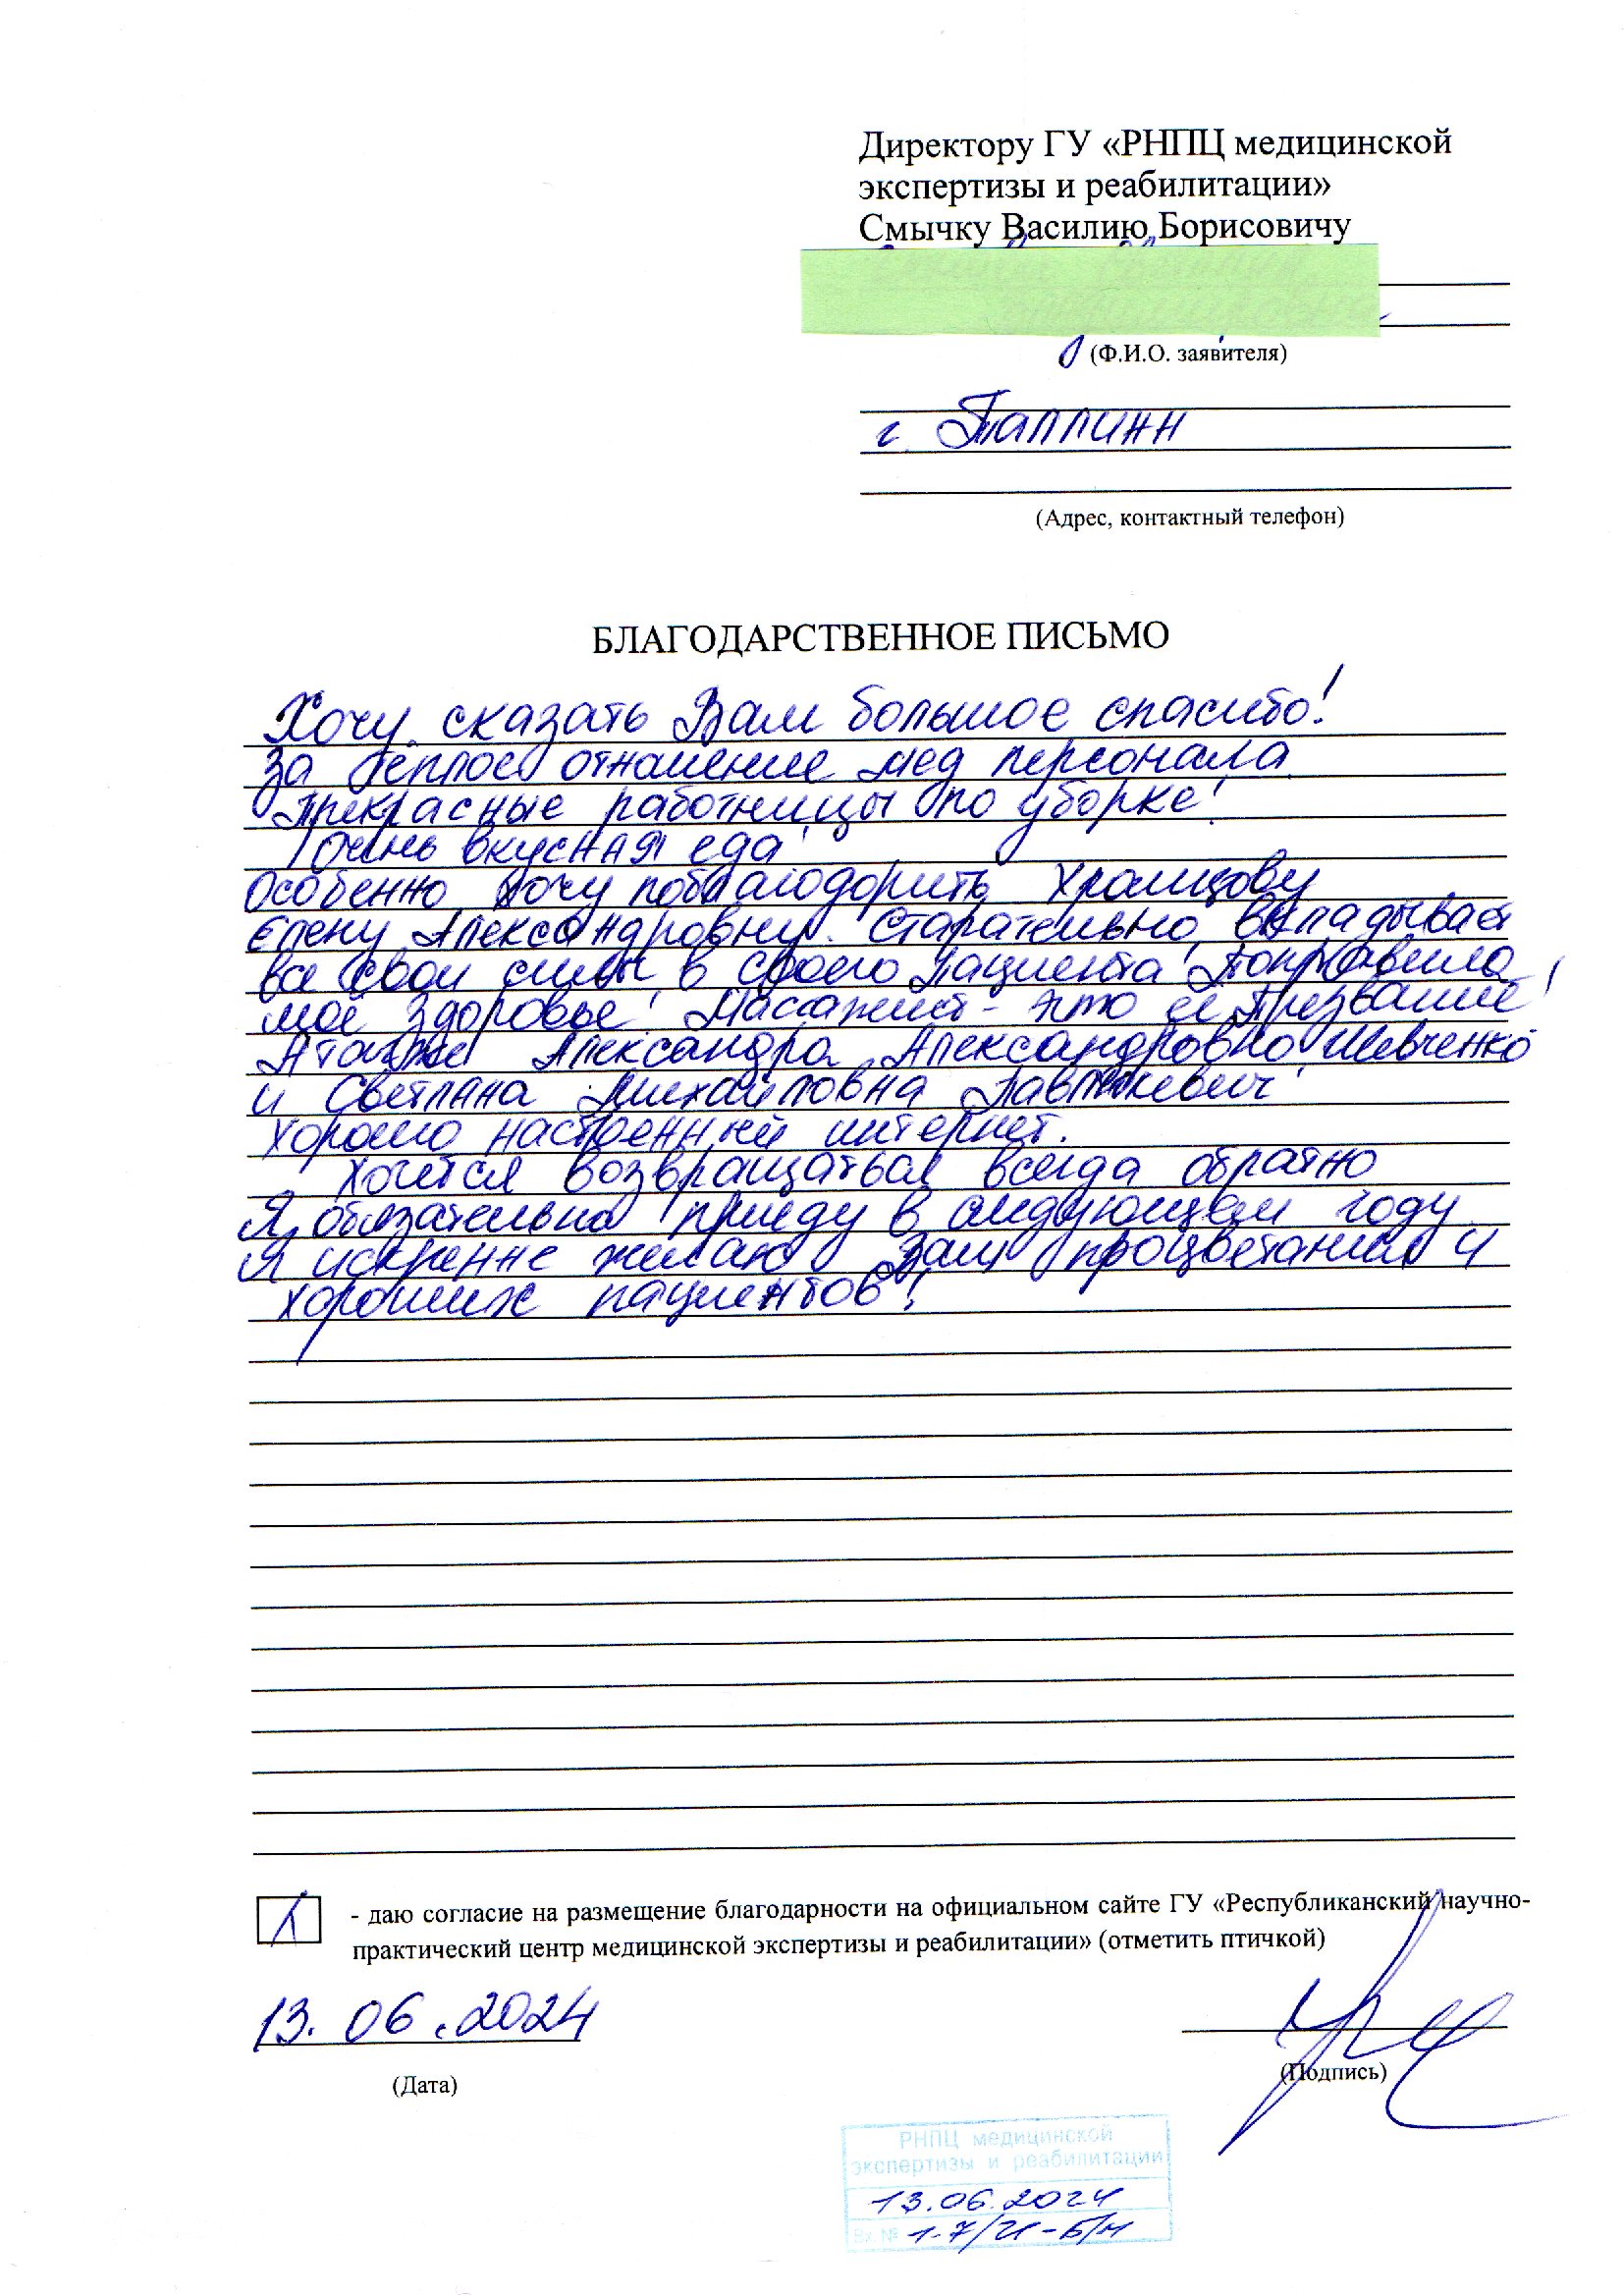 Директору ГУ «РНПЦ медицинской
экспертизы и реабилитации»
Смычку Василию Борисовичу
(Ф.И.О. заявителя)
г. Таллинн
(Адрес, контактный телефон)
БЛАГОДАРСТВЕННОЕ ПИСЬМО
Хочу сказать Вам большое спасибо!
За теплое отношение мед персонала
Прекрасные работницы по уборке!
Очень вкусная еда!
Особенно хочу поблагодорить Храмцову
Елену Александровну. Старательно вкладывает
все свои силы в своего пациента! Поправила
мое здоровье! Массажист - это её призвание!
А также Александра Александровна Шевченко
и Светлана Михайловна!
Хорошо настроенный интернет.
Хочется возвращаться всегда обратно
Я обязательно приеду в следующем году.
Я искренне желаю Вам процветания и
хороших пациентов!
- даю согласие на размещение благодарности на официальном сайте ГУ «Республиканский научно-
практический центр медицинской экспертизы и реабилитации» (отметить птичкой)
13.06.2024
(Дата)
(Подпись)
РНПЦ медицинской
экспертизы и реабилитации
13.06.2024
Вх.№ 1-7/21-Б/н